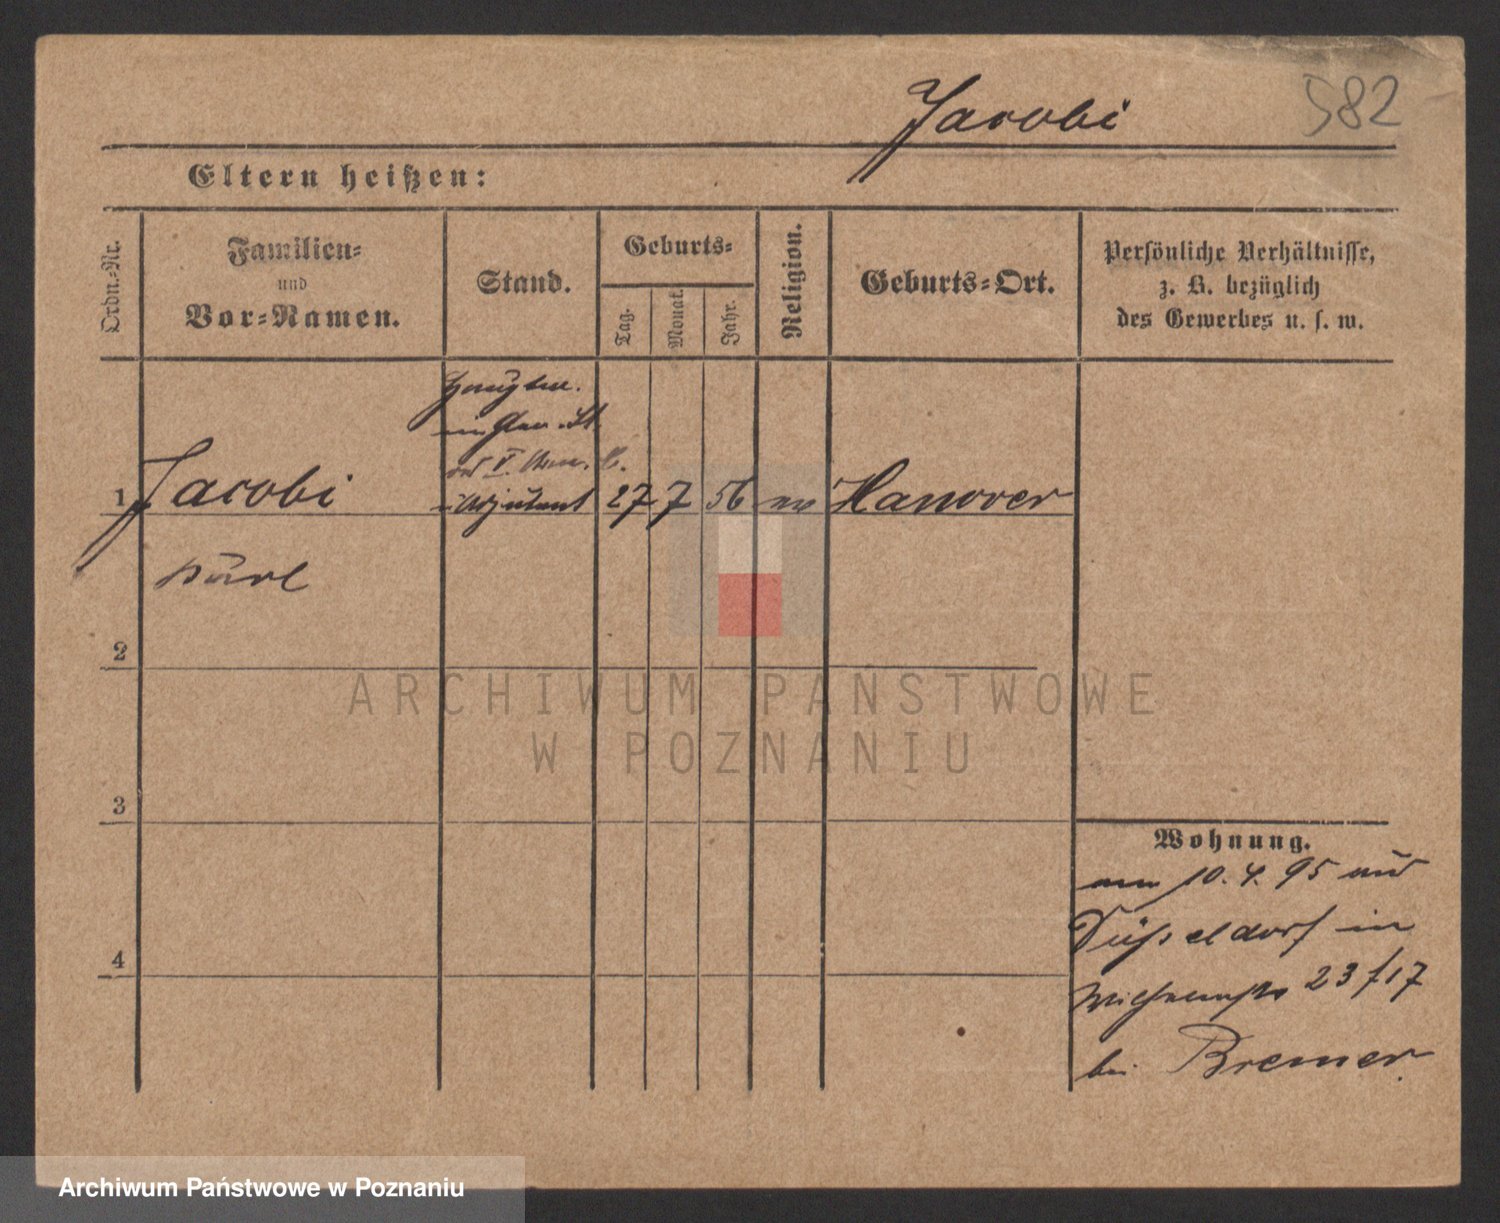 Jacobi
582
Eltern heißen:
Ordn.-Nr.
Familien-
und
Vor-Namen.
Stand.
Geburts-
Tag.
Monat.
Jahr.
Religion.
Geburts-Ort.
Persönliche Verhältnisse,
z. B. bezüglich
des Gewerbes u. s. w.
Hauptm.
im Gen. St.
des V. Arm. C.
Adjutant
1 Jacobi 27 7 56 ev Hanover
Karl
2
3
4
ARCHIWUM PAŃSTWOWE
W POZNANIU
Wohnung.
am 10. 4. 95 aus
Düsseldorf in
23/17
bei Bremer.
Archiwum Państwowe w Poznaniu